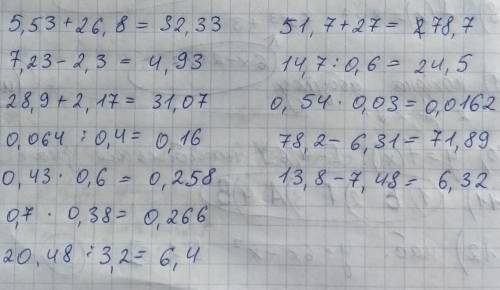 5,53 + 26,8 = 32,33
7,23 - 2,3 = 4,93
28,9 + 2,17 = 31,07
0,064 : 0,4 = 0,16
0,43 · 0,6 = 0,258
0,7 · 0,38 = 0,266
20,48 : 3,2 = 6,4
51,7 + 27 = 78,7
14,7 : 0,6 = 24,5
0,54 · 0,03 = 0,0162
78,2 - 6,31 = 71,89
13,8 - 7,48 = 6,32